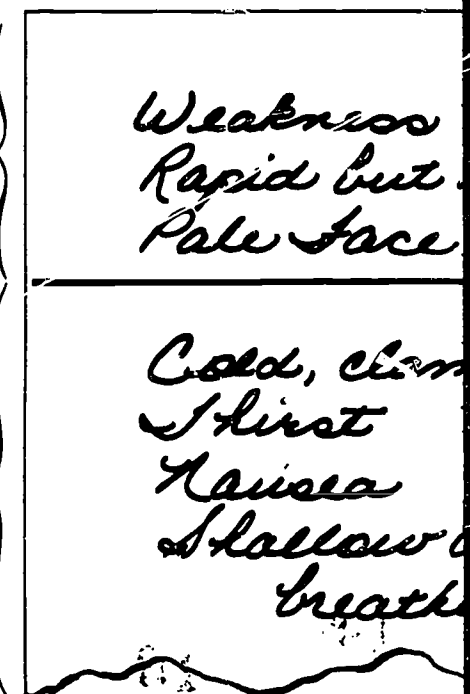 Weakness
Rapid but
Pale Face
Cold, clam
Thirst
Nausea
Shallow
breath